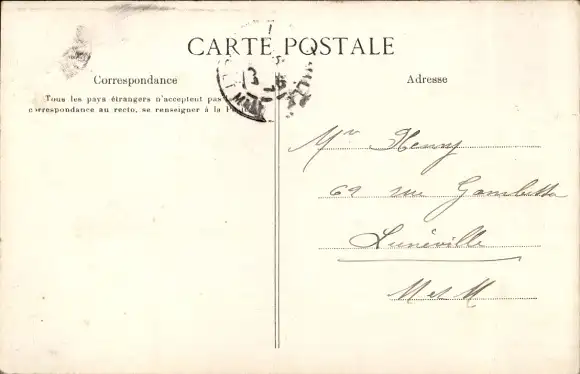 CARTE POSTALE
Correspondance
Tous les pays étrangers n'acceptent pas
correspondance au recto, se renseigner à la
Adresse
Mr Henry
69 rue Gambetta
Lunéville
M et M